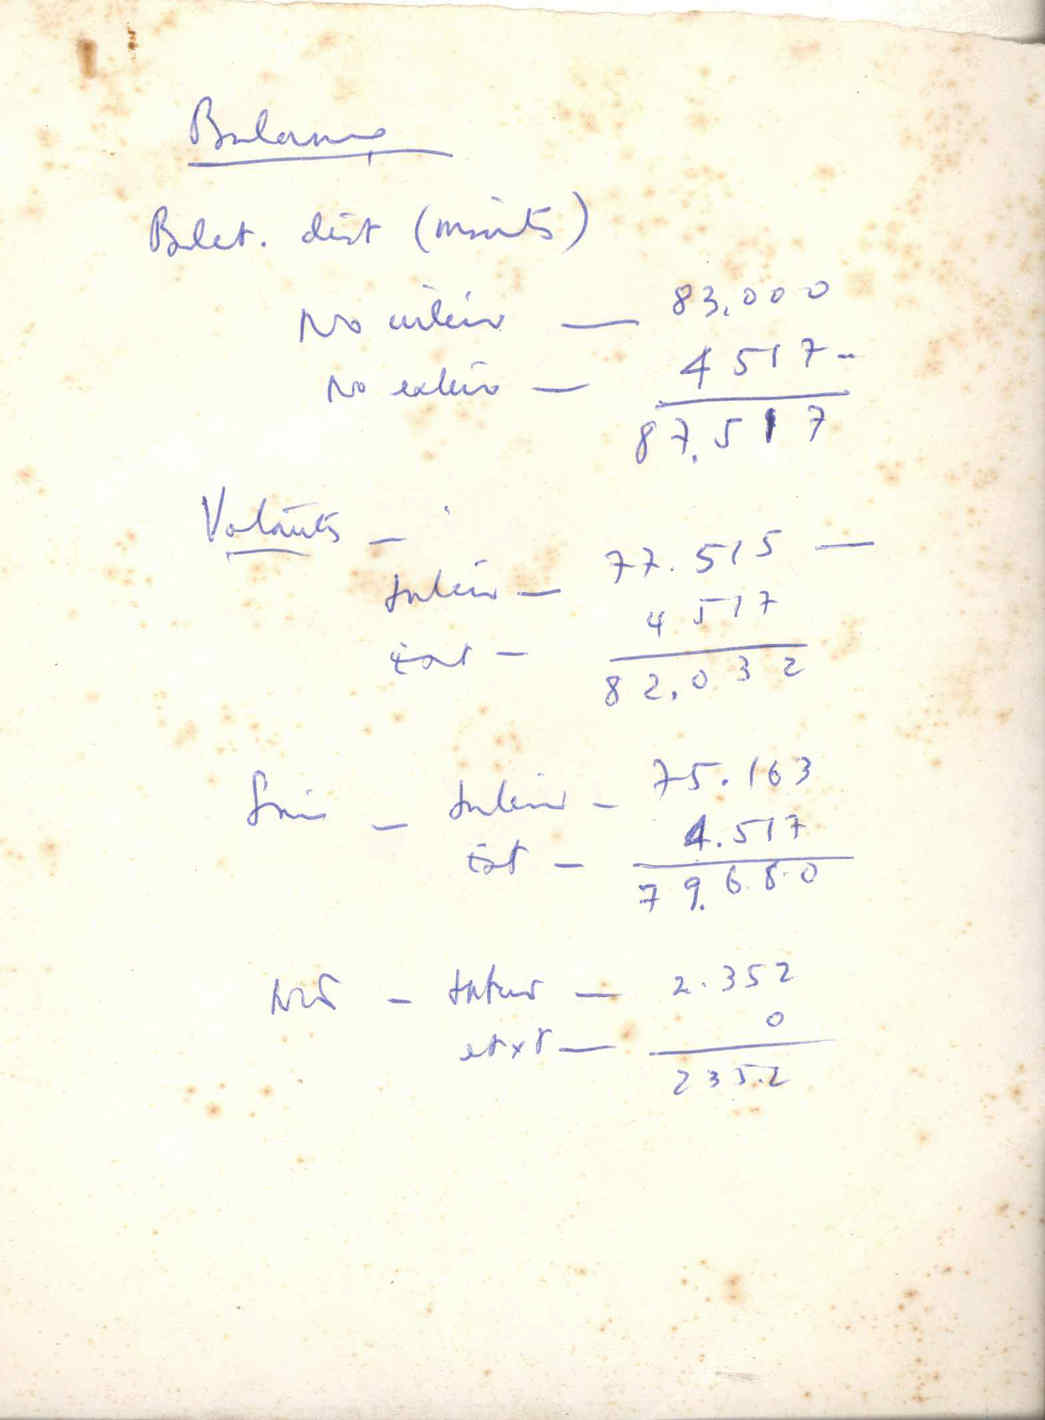 Balance
Bulet. dist (inscrits)
No interior — 83,000
No exterior — 4517 -
87.517
Votants -
Interior — 77.515 —
ext - 4517
82,032
- Interior - 75.163
ext - 4.517
79.680
- Interior — 2.352
ext — 0
2352